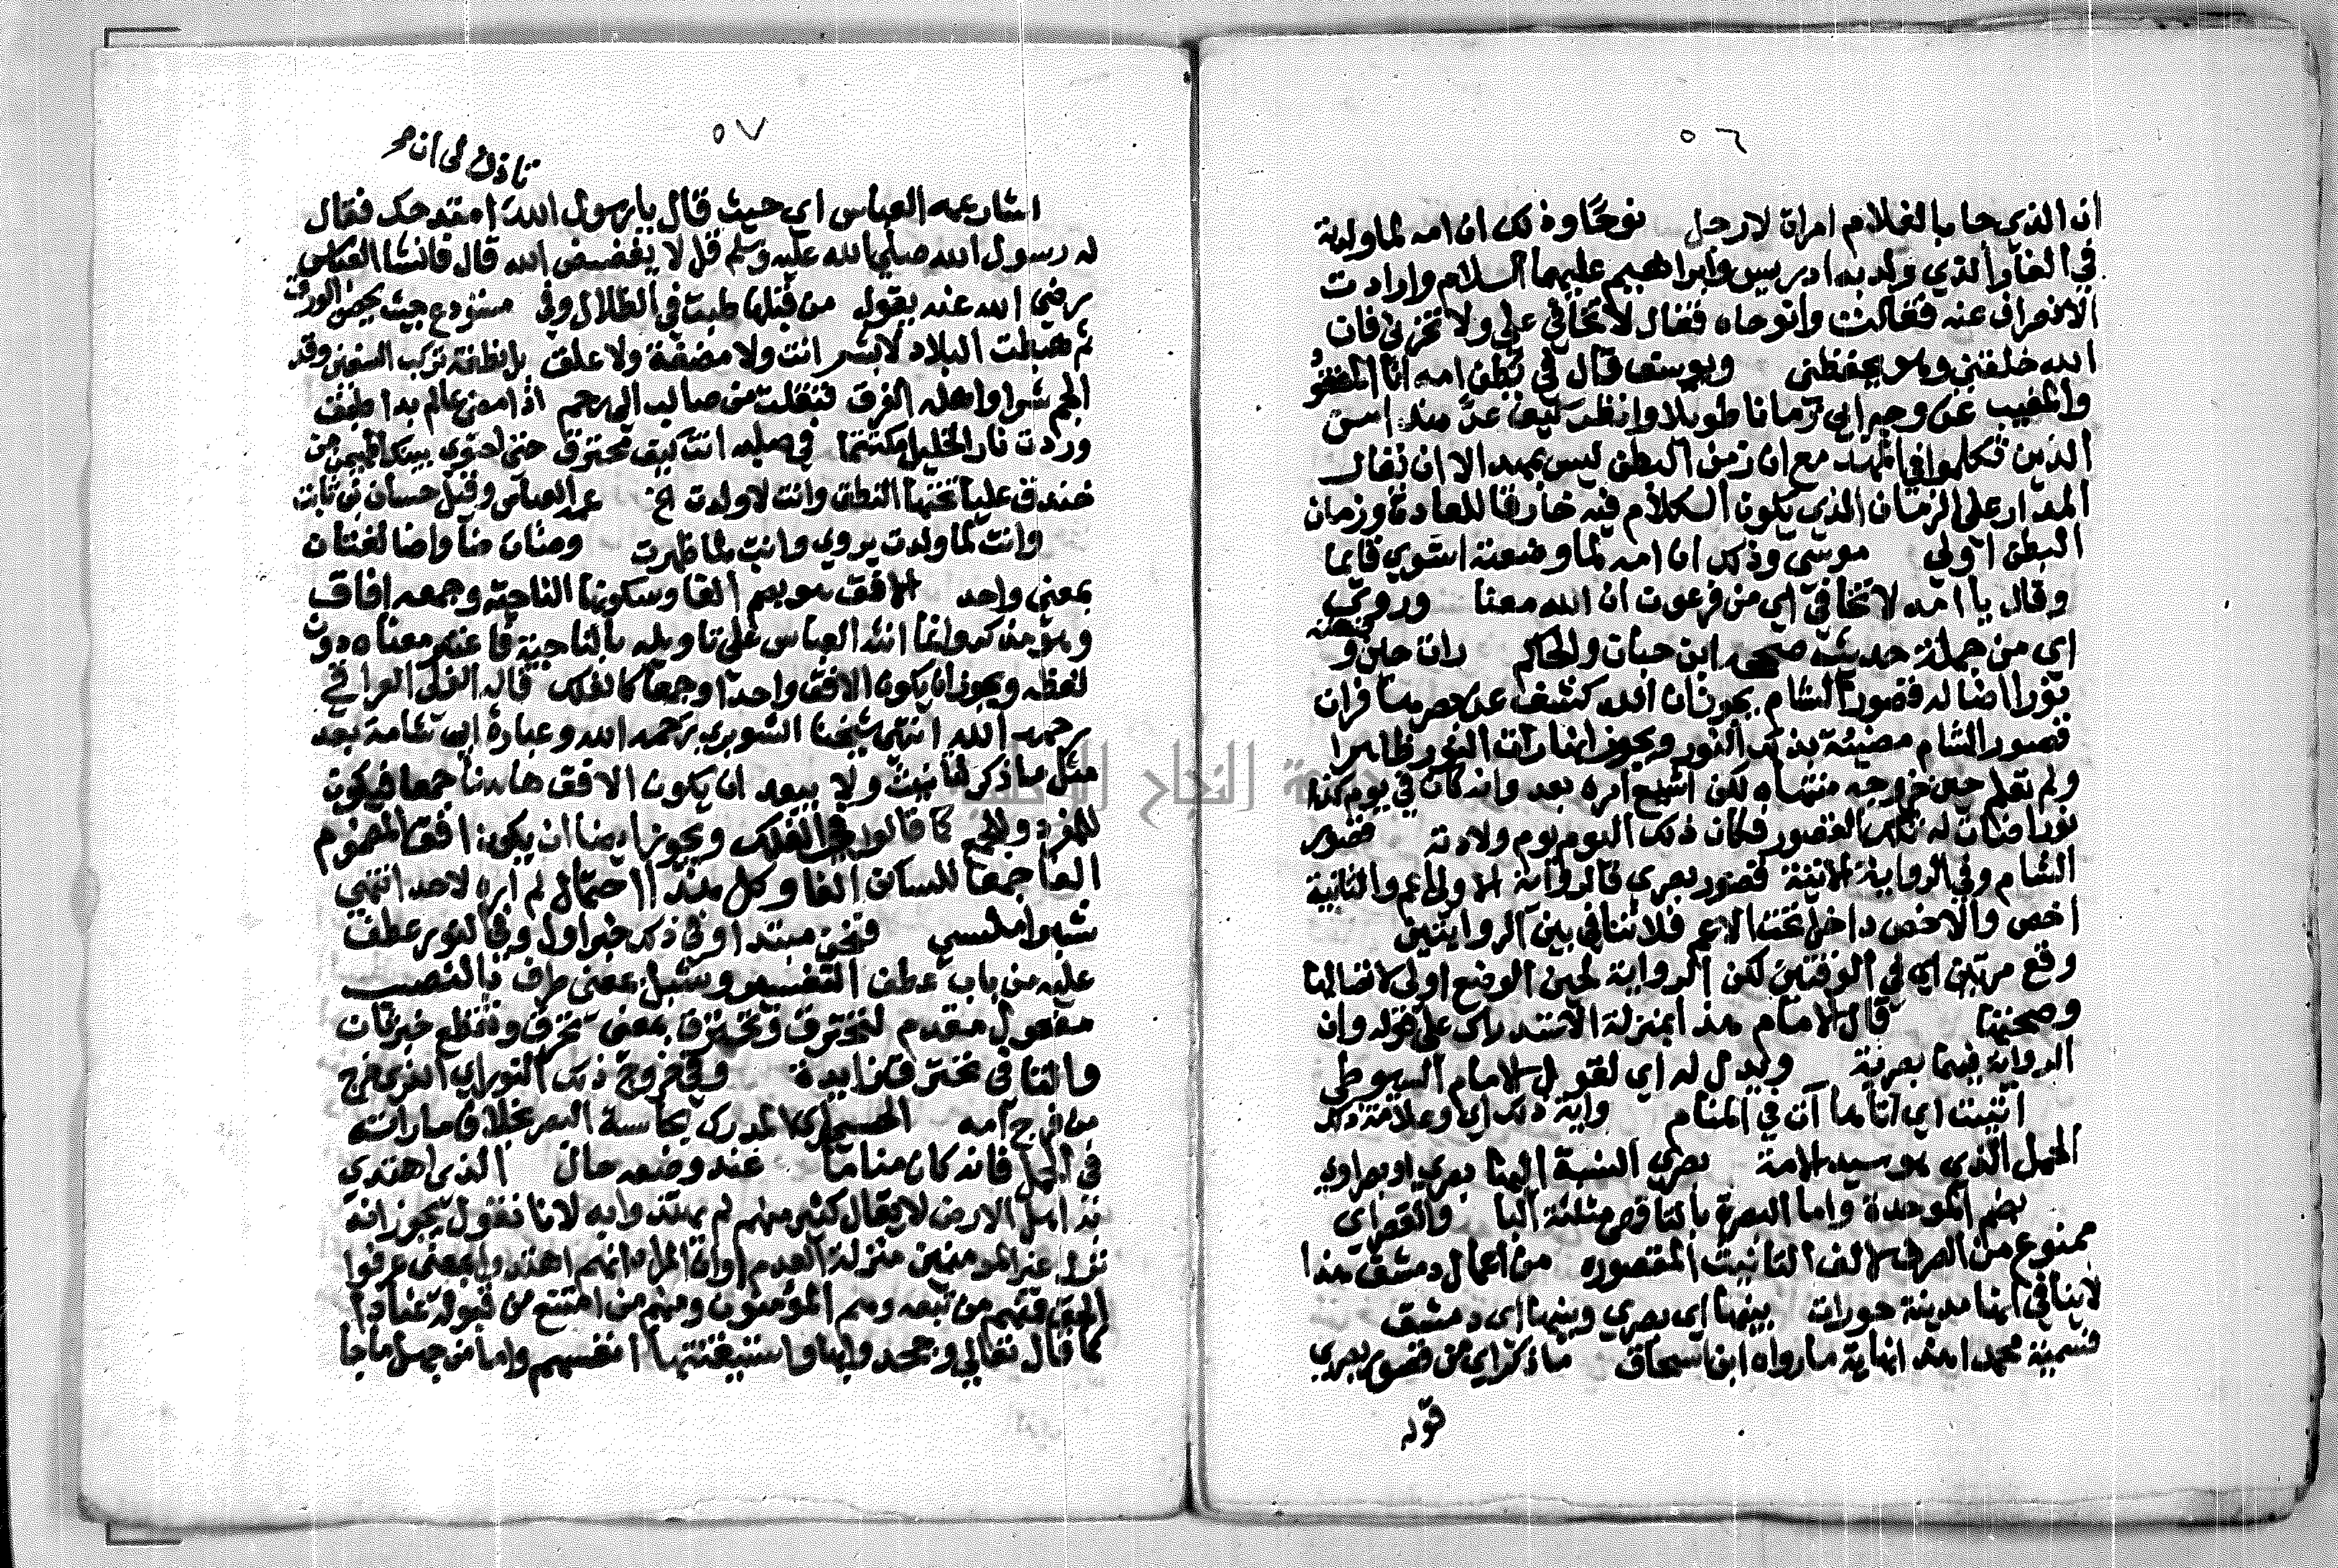 ٥٦
ان الذي جا بالغلام امراة لا رجل نوحًا وذلك ان امه لما ولدته
في الغار الذي ولد به ادريس وابراهيم عليهما السلام وارادت
الانصراف عنه فقالت وانوحاه فقال لا تخافي علي ولا تحزني فان
الله خلقني وهو يحفظني ويوسف قال في بطن امه انا المفقود
والمغيب عن وجه ابي زمانا طويلا وانظر كيف عد هذا من
الذين تكلموا في المهد مع ان زمن البطن ليس بمهد الا ان يقال
المدار على الزمان الذي يكون الكلام فيه خارقا للعادة وزمان
البطن اولى موسى وذلك ان امه لما وضعته استوي قايما
وقال يا امه لا تخافي اي من فرعون ان الله معنا وروي
اي من جملة حديث صححه ابن حبان والحاكم رات حين وضعته
نورا اضا له قصور الشام يجوز ان الله كشف عن بصرها فرات
قصور الشام مضيئة بذلك النور ويجوز انها رات النور ظاهرا
ولم تعلم حين خروجه منتهاه لكن اشيع امره بعد وانه كان في يوم كذا
نور اضات له تلك القصور فكان ذلك اليوم يوم ولادته قصور
الشام وفي الرواية الاتية قصور بصري فالرواية الاولى اعم والثانية
اخص والاخص داخل تحت الاعم فلا تنافي بين الروايتين
وقع مرتين اي في الوقتين لكن الرواية لحين الوضع اولى لاتصالها
وصحتها قال الامام هذا بمنزلة الاستدراك على قوله وان
الرواية فيهما بصرية ويدل له اي لقول الامام السيوطي
اتيت اي اتاها آت في المنام واية ذلك اي وعلامة ذلك
الحمل الذي هو سيد الامة بصري النسبة اليها بصري او بصراوي
بضم الموحدة واما البصرة بالتا فهي مثلثة البا والقصر اي
ممنوع من الصرف لالف التانيث المقصوره من اعمال دمشق هذا
لا ينافي انها مدينة حوران بينها اي بصري وبينها اي دمشق
فسميه محمدا هذا نهاية ما رواه ابن اسحاق ما ذكر اي من قصور بصري
قوله
٥٧
تاذن لي ان امد
اشار عمه العباس اي حيث قال يا رسول الله امتدحك فقال
له رسول الله صلي الله عليه وسلم قل لا يفضض الله قال فانشا العباس
رضي الله عنه يقول من قبلها طبت في الظلال وفي مستودع حيث يخصف الورق
ثم هبطت البلاد لا بشر انت ولا مضغة ولا علق بل نطفة تركب السفين وقد
الجم نسرا واهله الغرق تنقل من صالب الى رحم اذا مضي عالم بدا طبق
وردت نار الخليل مكتتما في صلبه انت كيف تحترق حتى احتوي بيتك المهيمن من
خندف عليا تحتها النطق وانت لا ولدت الخ عمه العباس وقيل حسان بن ثابت
وانت لما ولدت يروي وانت لما ظهرت وضات ضا واضا لغتان
بمعنى واحد الافق هو بضم الفا وسكونها الناحية وجمعه افاق
وهو مذكر وانما انثه العباس على تاويله بالناحية فاعتبر معناه دون
لفظه ويجوز ان يكون الافق واحدا وجمعا كالفلك قاله الولي العراقي
رحمه الله انتهى شيخنا الشوبري رحمه الله وعبارة ابي شامة بعد
مثل ما ذكر لتانيث ولا يبعد ان يكون الافق هاهنا جمعا فيكون
للمفرد وللجمع كما قالوا في الفلك ويجوز ايضا ان يكون افق المضموم
الفا جمعا للساكن الفا وكل هذا احتمال لم اره لاحد انتهي
شبراملسي فنحن مبتدا وفي ذلك خبر اول وفي النور عطف
عليه من باب عطف التفسير وسبل بمعنى طرق بالنصب
مفعول مقدم لنخترق ونخترق بمعنى نخرق ونقطع خبر ثان
والتا في نخترق زايدة وفي خروج ذلك النور اي الذي خرج
من فرج امه الحسي اي المدرك بحاسة البصر بخلاف ما راته
في الحمل فانه كان مناما عند وضعه حال الذي اهتدي
به اهل الارض لا يقال كثير منهم لم يهتدوا به لانا نقول يجوز انه
نزل غير المومنين منزلة العدم او ان المراد انهم اهتدوا بمعنى عرفوا
الحق فمنهم من تبعه وهم المؤمنون ومنهم من امتنع من قبوله عنادا
كما قال تعالي وجحدوا بها واستيقنتها انفسهم واما من جهل ما جا